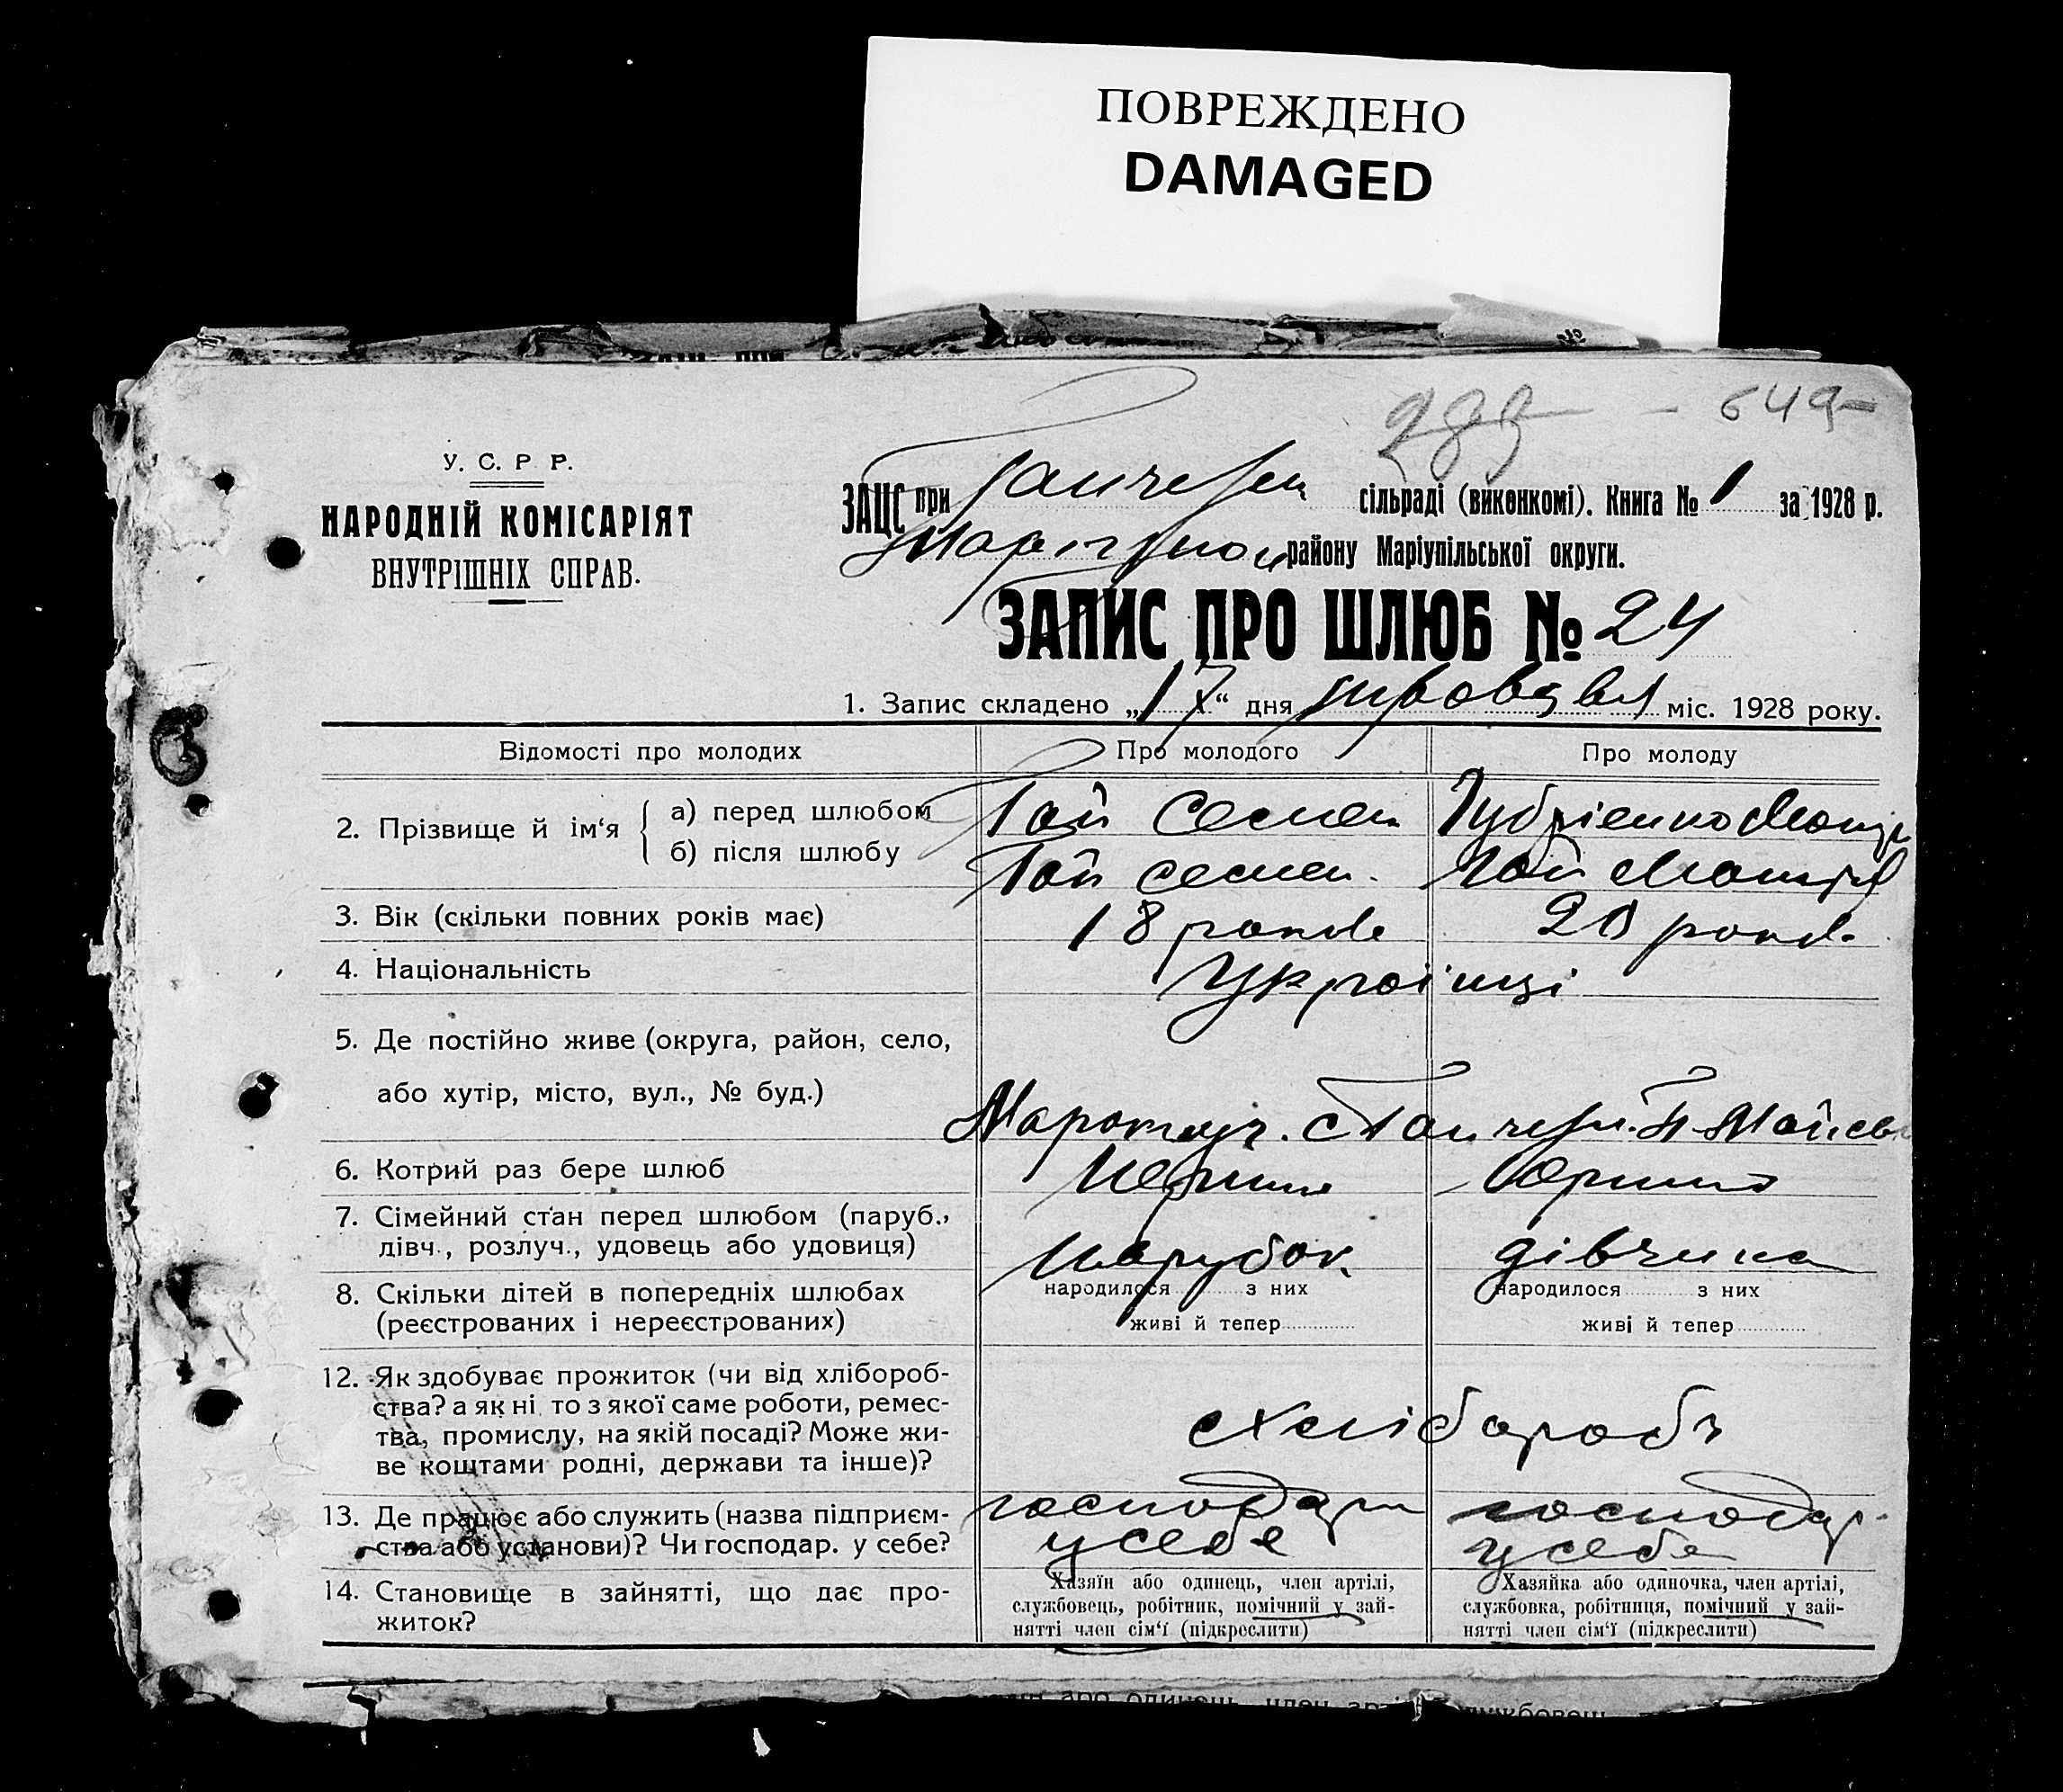 ПОВРЕЖДЕНО
DAMAGED
649
У. С. Р Р.
НАРОДНІЙ КОМІСАРІЯТ
ВНУТРІШНІХ СПРАВ.
ЗАЦС при сільраді (виконкомі). Книга № 1 за 1928 р.
району Маріупільської округи.
ЗАПИС ПРО ШЛЮБ № 24
1. Запис складено „17“ дня міс. 1928 року.
Відомості про молодих Про молодого Про молоду
2. Прізвище й ім‘я а) перед шлюбом Гай Семен
б) після шлюбу Гай Семен Гай
3. Вік (скільки повних років має) 18 років 20 років
4. Національність Українці
5. Де постійно живе (округа, район, село,
або хутір, місто, вул., № буд.)
6. Котрий раз бере шлюб Перший
7. Сімейний стан перед шлюбом (паруб.,
дівч., розлуч., удовець або удовиця) парубок дівчина
8. Скільки дітей в попередніх шлюбах народилося з них народилося з них
(реєстрованих і нереєстрованих) живі й тепер живі й тепер
12. Як здобуває прожиток (чи від хлібороб-
ства? а як ні то з якої саме роботи, ремес-
тва, промислу, на якій посаді? Може жи-
ве коштами родні, держави та інше)?
хлібороб
13. Де працює або служить (назва підприєм- господар господар
ства або установи)? Чи господар. у себе? у себе у себе
14. Становище в зайнятті, що дає про-
житок?
Хазяїн або одинець, член артілі,
службовець, робітник, помічний у зай-
нятті член сім‘ї (підкреслити)
Хазяйка або одиночка, член артілі,
службовка, робітниця, помічний у зай-
нятті член сім‘ї (підкреслити)